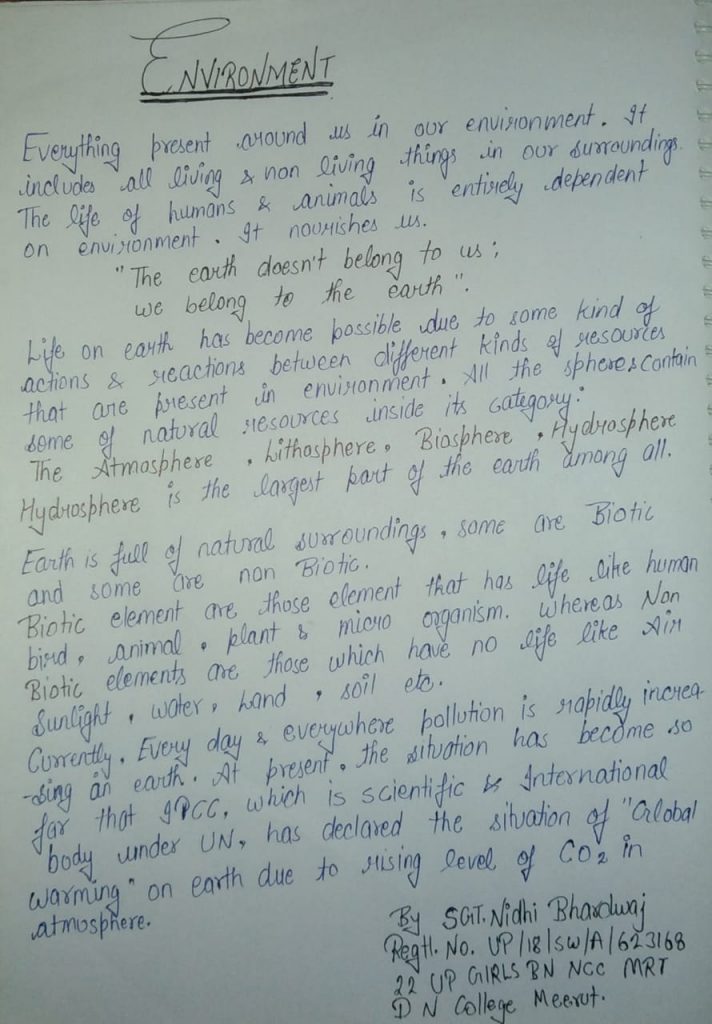 ENVIRONMENT
Everything present around us in our environment. It
includes all living & non living things in our surroundings.
The life of humans & animals is entirely dependent
on environment. It nourishes us.
"The earth doesn't belong to us;
we belong to the earth".
Life on earth has become possible due to some kind of
actions & reactions between different kinds of resources
that are present in environment. All the spheres contain
some of natural resources inside its category:
The Atmosphere, Lithosphere, Biosphere, Hydrosphere
Hydrosphere is the largest part of the earth among all.
Earth is full of natural surroundings, some are Biotic
and some are non Biotic.
Biotic element are those element that has life like human
bird, animal, plant & micro organism. Whereas Non
Biotic elements are those which have no life like Air
Sunlight, water, Land, soil etc.
Currently, Every day & everywhere pollution is rapidly increa-
-sing on earth. At present, the situation has become so
far that IPCC, which is scientific & International
body under UN, has declared the situation of "Global
warming" on earth due to rising level of CO2 in
atmosphere.
By SGT. Nidhi Bhardwaj
Regtl. No. UP/18/SW/A/623168
22 UP GIRLS BN NCC MRT
D N College Meerut.